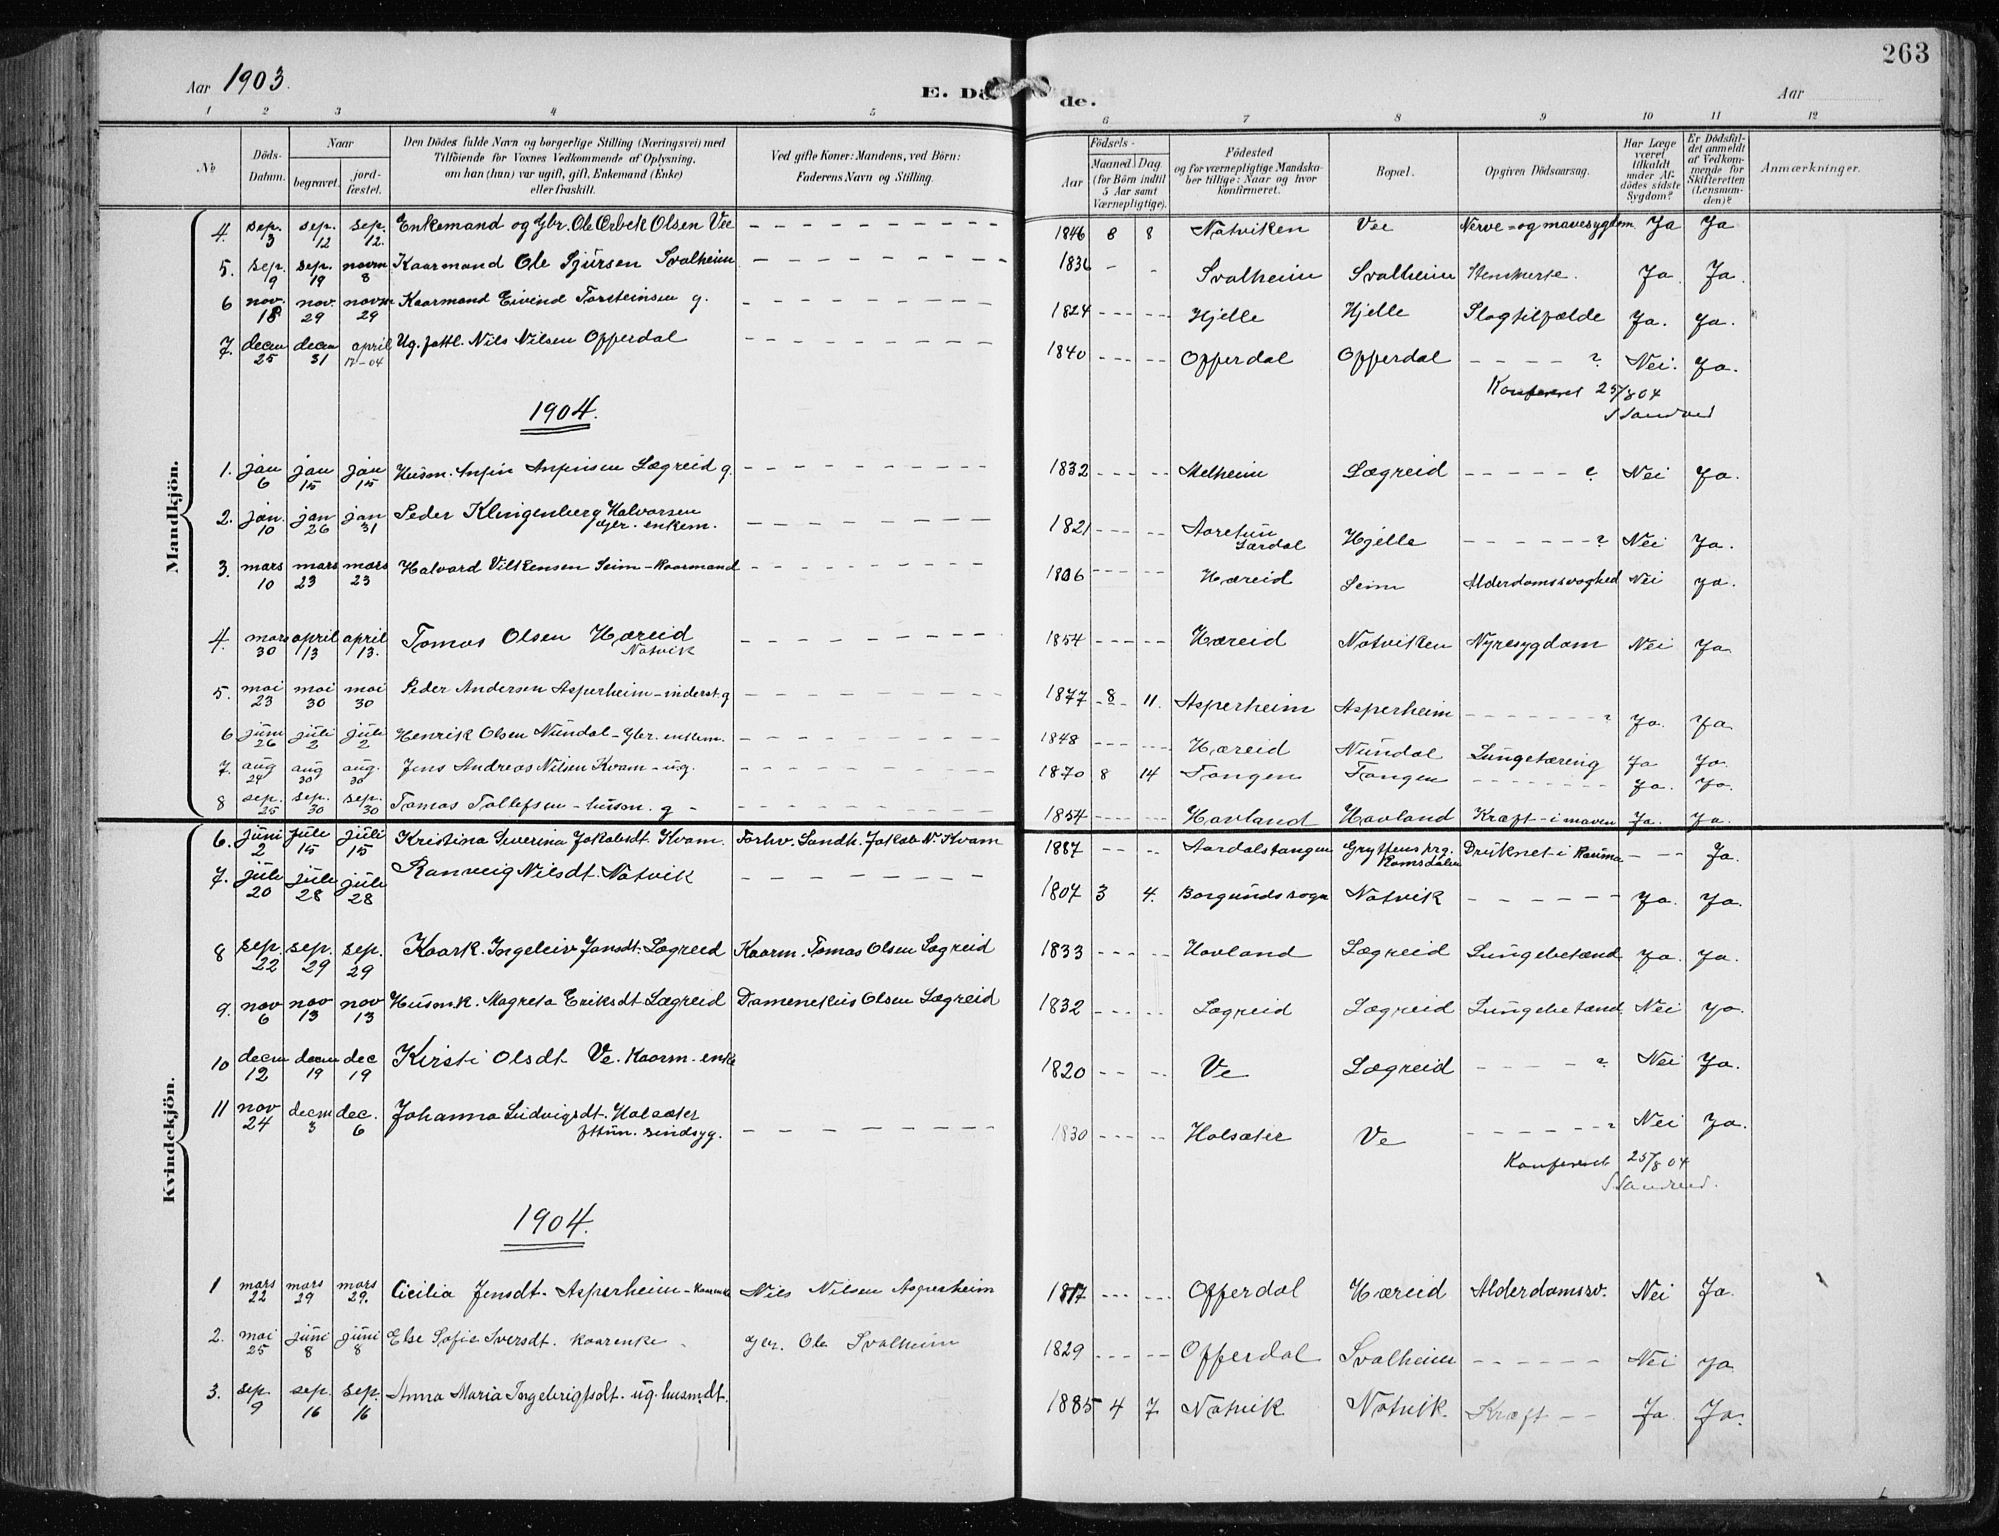 263
Aar 1903.
E. Dö de.
Aar
1 2 3 4 5 6 7 8 9 10 11 12
No
Döds-Datum.
Naar
begravet.
jord-fæstet.
Den Dödes fulde Navn og borgerlige Stilling (Næringsvei) med
Tilföiende for Voxnes Vedkommende af Oplysning.
om han (hun) var ugift, gift, Enkemand (Enke)
eller fraskilt.
Ved gifte Koner: Mandens, ved Börn:
Faderens Navn og Stilling.
Födsels-
Aar
Maaned Dag
(for Börn indtil
5 Aar samt
Værnepligtige).
Födested
og for værnepligtige Mandska-
ber tillige: Naar og hvor
konfirmeret.
Bopæl.
Opgiven Dödsaarsag.
Har Læge
været
tilkaldt
under Af-
dödes sidste
Sygdom?
Er Dödsfal-
det anmeldt
af Vedkom-
mende for
Skifteretten
(Lensman-
den)?
Anmærkninger.
Mandkjön.
4. sep. 3 sep. 12 sep. 12. Enkemand og Gbr. Ole Orbek Olsen Vee 1846 8 8 Nåtviken Vee Nerve- og mavesygdom Ja Ja
5. sep. 9 sep. 19 novm 8 Kaarmand Ole Sjursen Svalheim 1836 Svalheim Svalheim Ja. Ja.
6 nov. 18 nov. 29 novm 29 Kaarmand Eivind Torsteinsen g. 1824 Hjelle Hjelle Slagtilfælde Ja. Ja.
7. decm 25 decm 31 april 17-04 Ug. fattl. Nils Nilsen Offerdal 1840 Offerdal Offerdal ? Nei. Ja.
Konfereret 25/8 04
1904.
1. jan 6 jan 15 jan 15 Husm. Anfin Anfinsen Lægreid g. 1832 Melheim Lægreid ? Nei Ja.
2. jan. 10 jan 26 jan 31 Peder Klingenberg Halvorsen
gbr. enkem. 1821 Aaretun
Lærdal Hjelle ? Nei Ja.
3. mars 10 mars 23 mars 23 Halvard Vilkensen Seim - Kaarmand 1816 Hæreid Seim Alderdomssvaghed Nei Ja.
4. mars 30 april 13 april 13. Tomas Olsen Hæreid
Natvik 1854 Hæreid Natviken Nyresygdom Nei Ja
5. mai 23 mai 30 mai 30 Peder Andersen Asperheim - inderst. g 1877 8 11. Asperheim Asperheim ? Ja. Ja
6 juni 26 juli 2 juli 2 Henrik Olsen Nundal - Gbr. enkem. 1848 Hæreid Nundal Lungetæring Ja Ja.
7. aug 24 aug 30 aug. 30 Jens Andreas Nilsen Kvam - ug. 1870 8 14 Tangen Tangen Ja. Ja.
8 sep. 25 sep. 30 sep. 30 Tomas Tollefsen - husm. g - 1854 Havland Havland Kræft - i maven Ja. Ja.
Kvindekjön.
6. juni 2 juli 15 juli 15 Kristina Severina Jakobsdt. Kvam. Forhv. Landh. Jakob N. Kvam 1887 Aardalstangen Gryttens prg.
Romsdalen Druknet i Rauma Ja.
7. juli 20 juli 28 juli 28 Ranveig Nilsdt. Nåtvik 1807 3 4. Borgunds sogn Nåtvik Ja. Ja.
8 sep. 22 sep. 29 sep. 29 Kaark. Ingeleiv Jonsdt. Lægreid Kaarm. Tomas Olsen Lægreid 1833 Hovland Lægreid Lungebetænd Ja. Ja.
9. nov 6 nov 13 nov 13 Husmk. Magreta Eriksdt Lægreid Damenekus Olsen Lægreid 1832 Lægreid Lægreid Lungebetænd Nei Ja.
10 decm 12 decm 19 dec 19 Kirsti Olsdt. Ve. Kaarm - enke 1820 Ve Lægreid ? Nei Ja.
11 nov 24 decm 3 dec. 6 Johanna Ludvigsdt. Halsæter
fttün. sindsyg. 1830 Halsæter Ve ? Nei Ja.
Konfereret 25/8 04
1904.
1 mars 22 mars 29 mars 29. Cicilia Jensdt. Asperheim - Nils Nilsen Asperheim 1817 Offerdal Hæreid Alderdomssv. Nei Ja.
2. mai 25 juni 8 juni 8 Else Sofie Iversdt. kaarenke gbr. Ole Svalheim 1829 Offerdal Svalheim Nei Ja
3. sep. 9 sep. 16 sep. 16 Anna Maria Ingebrigtsdt. ug. husmdt. 1885 4 7 Nåtvik Nåtvik Kræft Ja Ja.